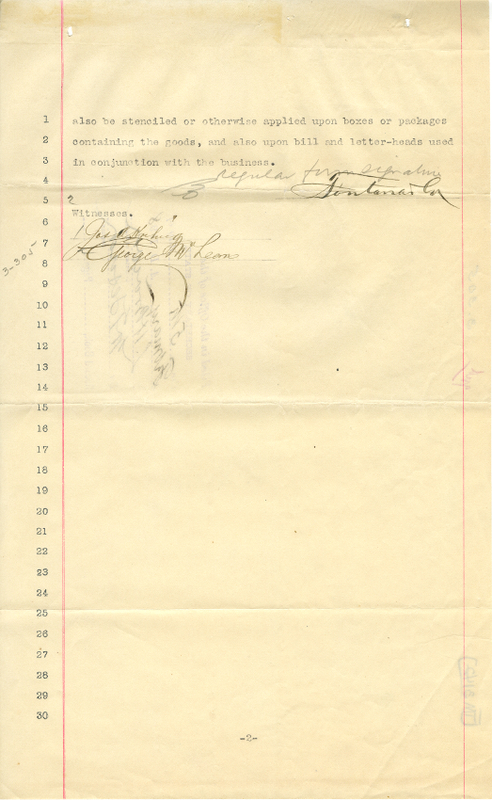 1 also be stenciled or otherwise applied upon boxes or packages
2 containing the goods, and also upon bill and letter-heads used
3 in conjunction with the business.
regular firm signature
4 Fontana & Co
5 2
6 Witnesses.
7 1 Jas.
8 George McLean
3-305
9
10
11
12
13
14
15
16
17
18
19
20
21
22
23
24
25
26
27
28
29
30
-2-